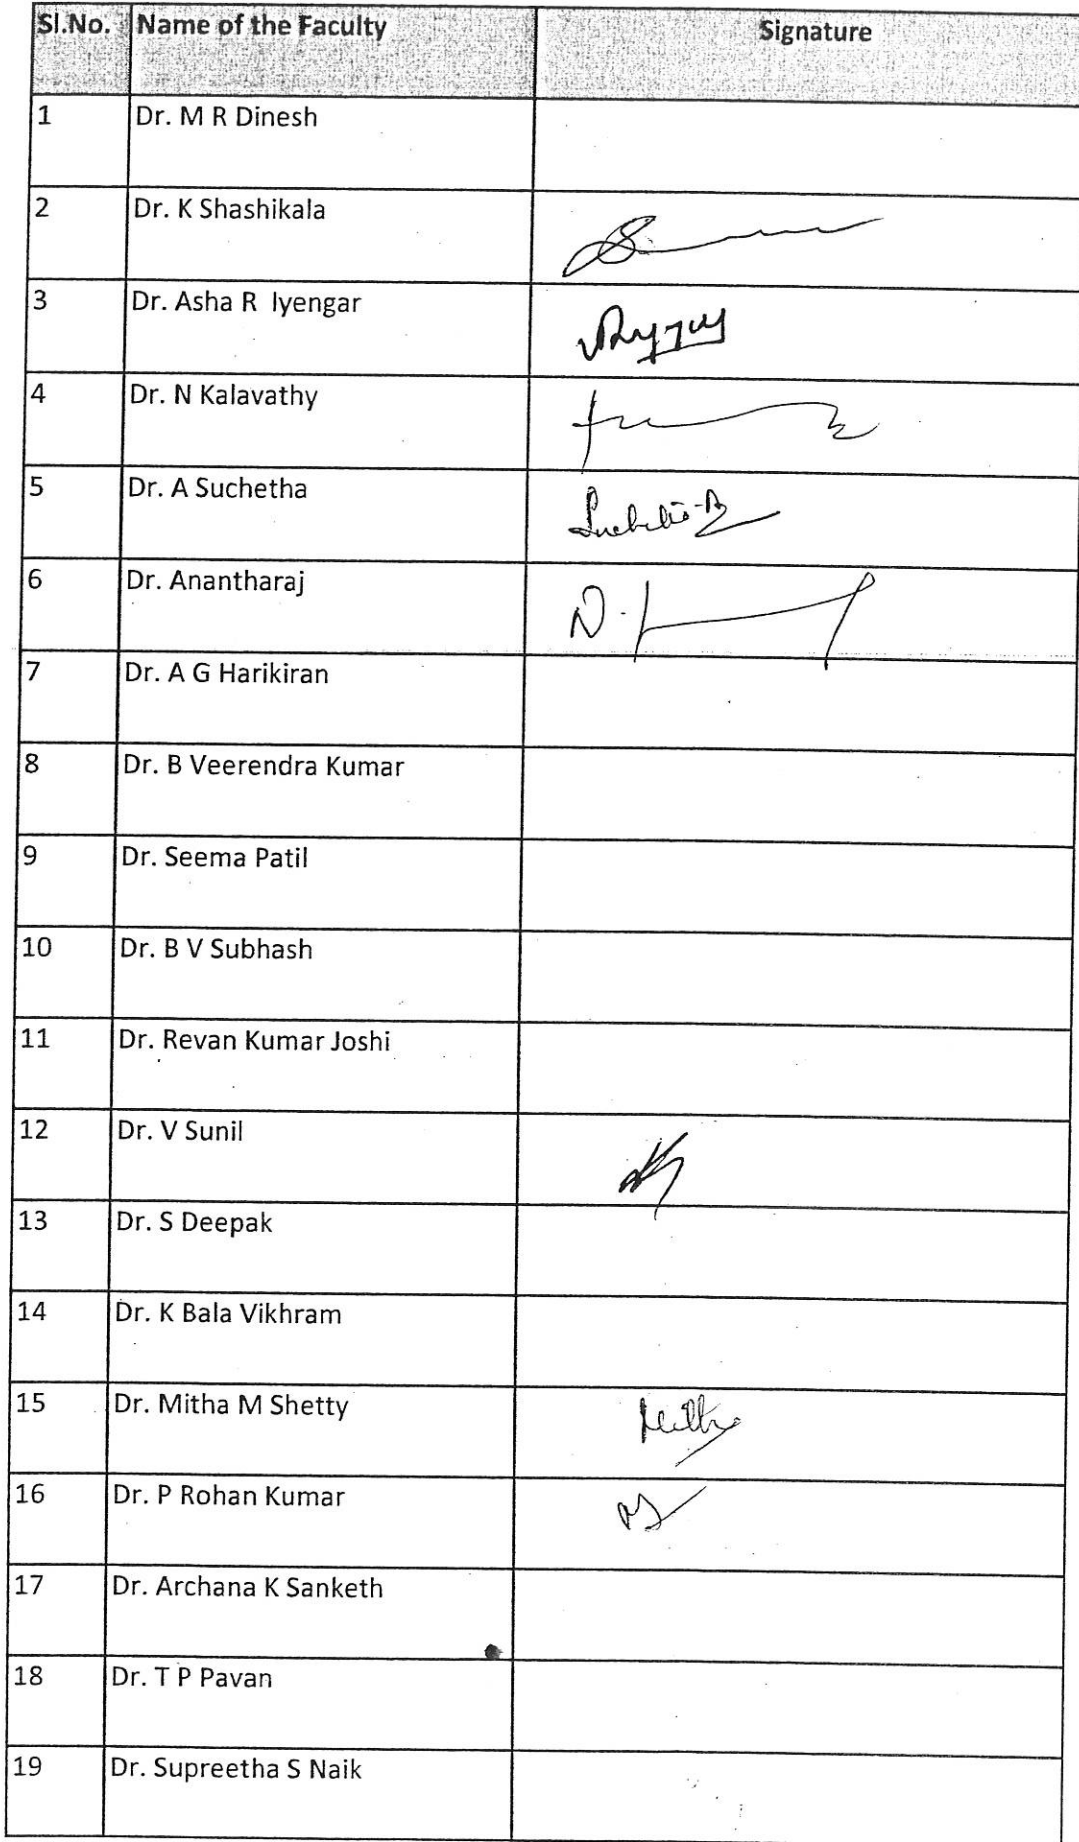 Sl.No. Name of the Faculty Signature
1 Dr. M R Dinesh
2 Dr. K Shashikala
3 Dr. Asha R Iyengar
4 Dr. N Kalavathy
5 Dr. A Suchetha
6 Dr. Anantharaj
7 Dr. A G Harikiran
8 Dr. B Veerendra Kumar
9 Dr. Seema Patil
10 Dr. B V Subhash
11 Dr. Revan Kumar Joshi
12 Dr. V Sunil
13 Dr. S Deepak
14 Dr. K Bala Vikhram
15 Dr. Mitha M Shetty
16 Dr. P Rohan Kumar
17 Dr. Archana K Sanketh
18 Dr. T P Pavan
19 Dr. Supreetha S Naik